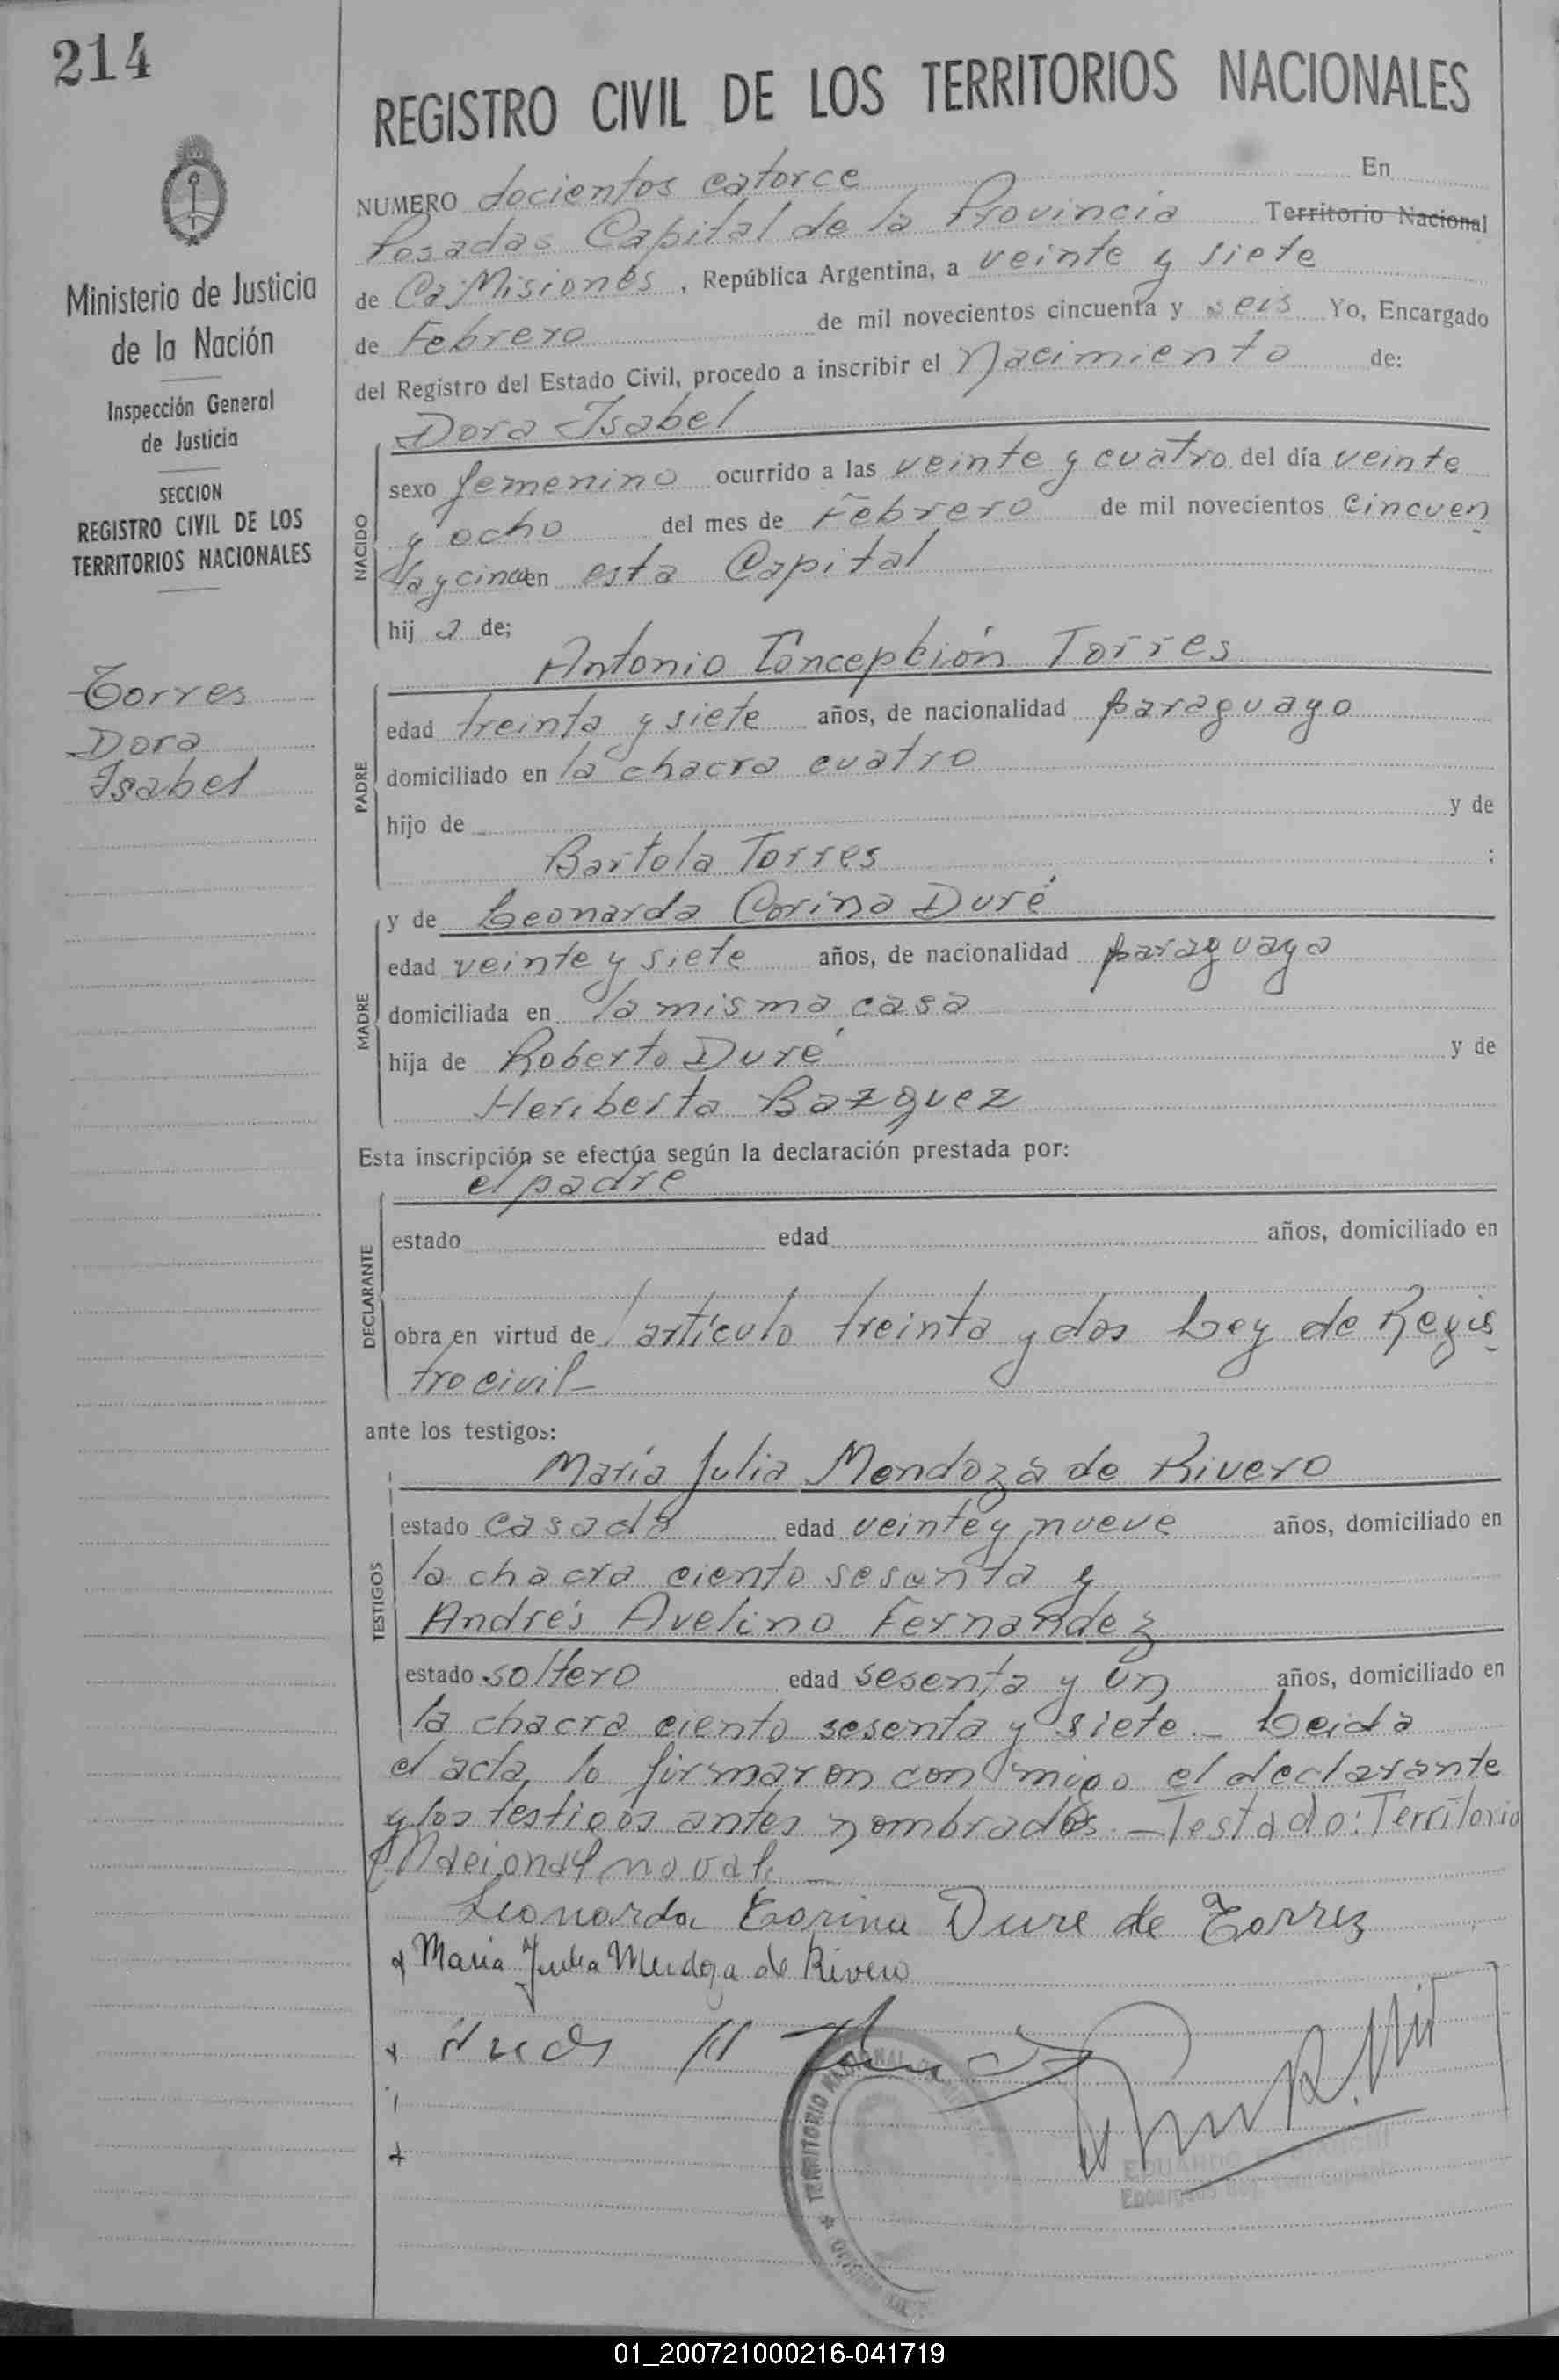 214
REGISTRO CIVIL DE LOS TERRITORIOS NACIONALES
Ministerio de Justicia
de la Nación
Inspección General
de Justicia
SECCION
REGISTRO CIVIL DE LOS
TERRITORIOS NACIONALES
Torres
Dora
Isabel
NUMERO docientos catorce En
Posadas Capital de la Provincia Territorio Nacional
de Ca Misiones, República Argentina, a veinte y siete
de Febrero de mil novecientos cincuenta y seis Yo, Encargado
del Registro del Estado Civil, procedo a inscribir el Nacimiento de:
Dora Isabel
NACIDO
sexo femenino ocurrido a las veinte y cuatro del día veinte
y ocho del mes de Febrero de mil novecientos cincuen
ta y cinco en esta Capital
hij a de;
Antonio Concepción Torres
PADRE
edad treinta y siete años, de nacionalidad paraguayo
domiciliado en la chacra cuatro
hijo de y de
Bartola Torres ;
y de Leonarda Corina Duré
MADRE
edad veinte y siete años, de nacionalidad paraguaya
domiciliada en la misma casa
hija de Roberto Duré y de
Heriberta Bazquez
Esta inscripción se efectúa según la declaración prestada por:
el padre
DECLARANTE
estado edad años, domiciliado en
obra en virtud del artículo treinta y dos Ley de Regis
tro civil-
ante los testigos:
María Julia Mendoza de Rivero
TESTIGOS
estado casada edad veinte y nueve años, domiciliado en
la chacra ciento sesenta y
Andrés Avelino Fernandez
estado soltero edad sesenta y un años, domiciliado en
la chacra ciento sesenta y siete.- Leida
el acta, lo firmaron conmigo el declarante
y los testigos antes nombrados.- Testado: Territorio
Nacional no vale
Leonarda Corina Dure de Torrez
Maria Julia Mendoza de Rivero
TERRITORIO NACIONAL
EDUARDO
Encargado Reg.
01_200721000216-041719